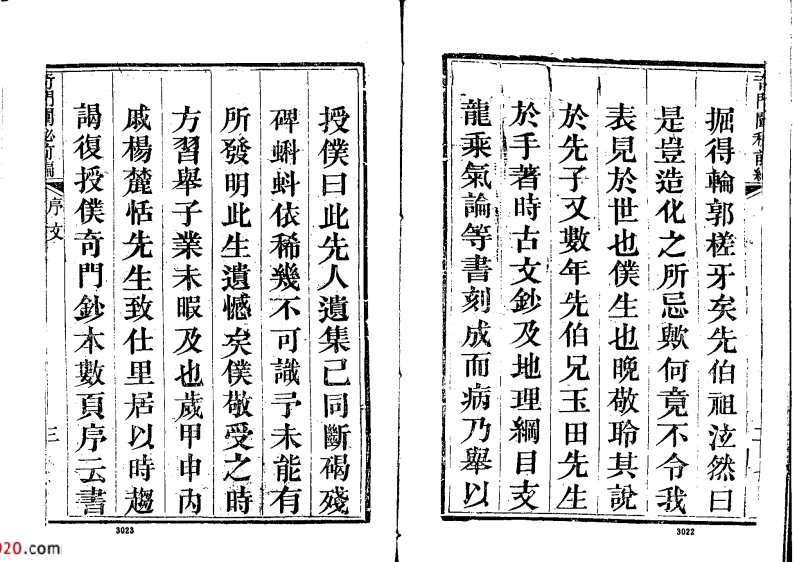 掘得輪郭槎牙矣先伯祖泫然曰
是豈造化之所忌歟何竟不令我
表見於世也僕生也晚敬聆其說
於先子又數年先伯兄玉田先生
於手著時古文鈔及地理綱目支
龍乘氣論等書刻成而病乃舉以
3022
授僕曰此先人遺集已同斷碣殘
碑蝌蚪依稀幾不可識予未能有
所發明此生遺憾矣僕敬受之時
方習舉子業未暇及也歲甲申內
戚楊麓恬先生致仕里居以時趨
謁復授僕奇門鈔本數頁序云書
奇門闡秘前編
序文
三
3023
020.com